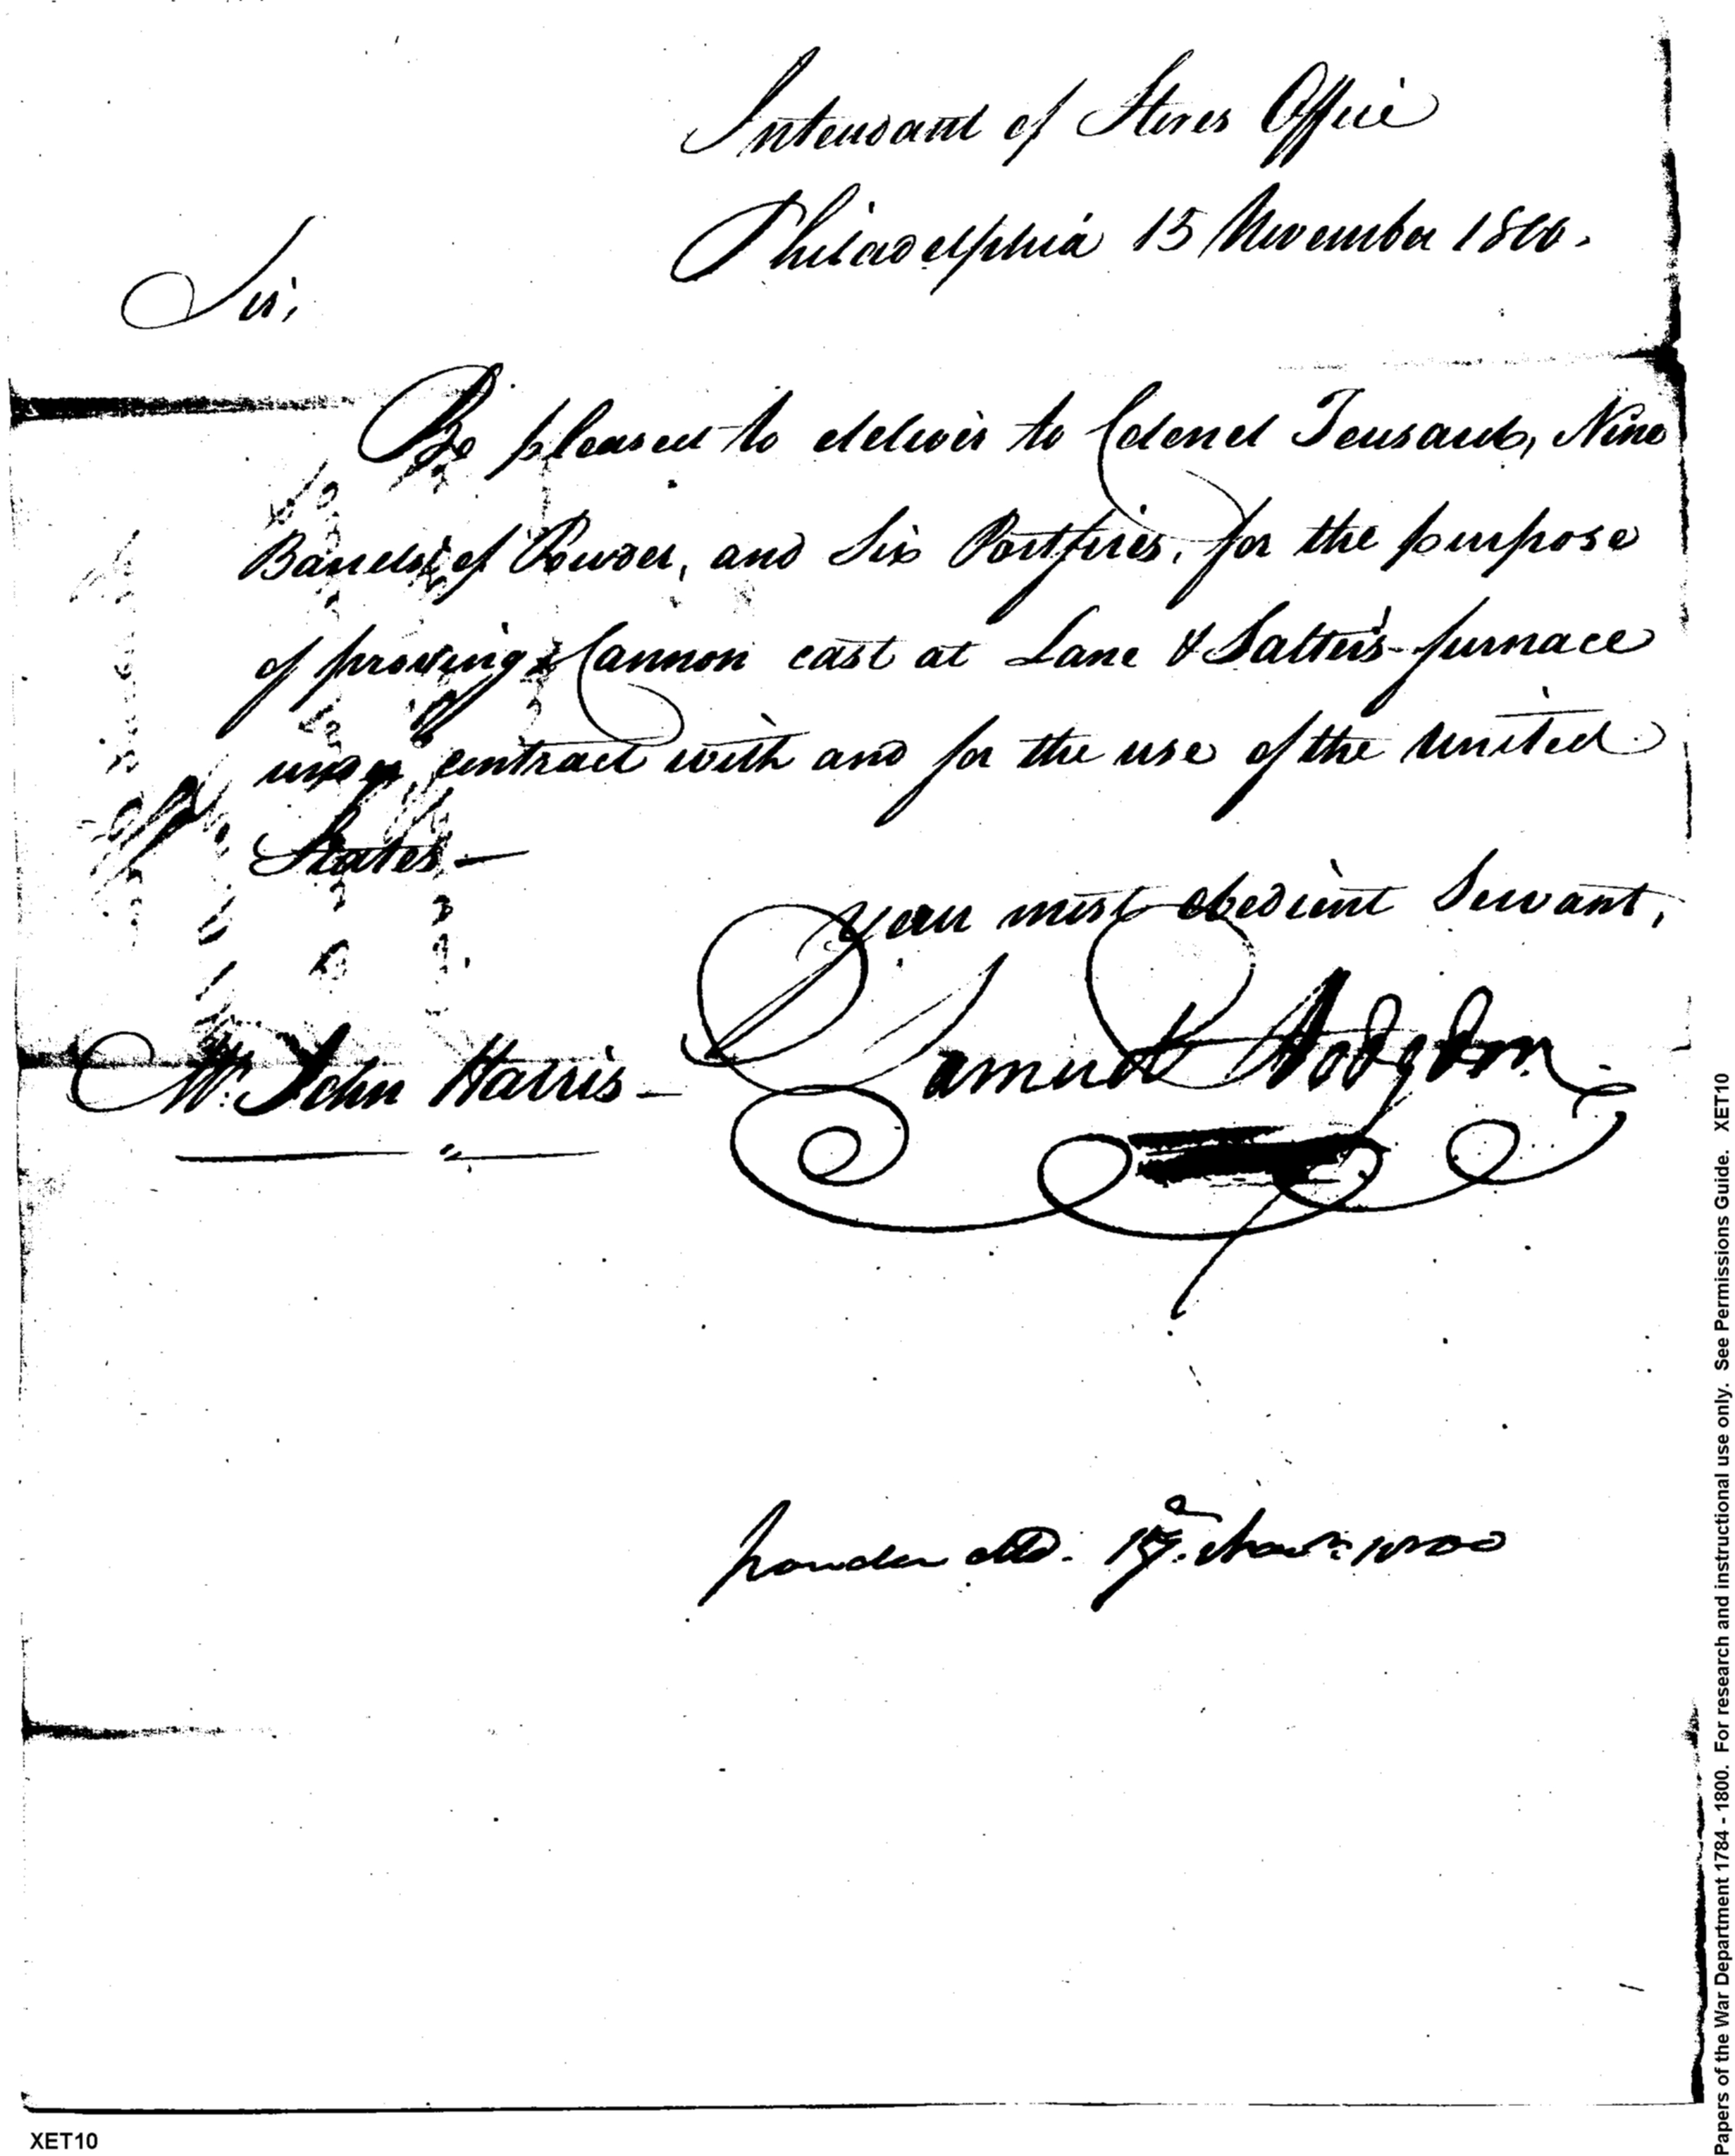 Intendant of Stores Office
Philadelphia 15 November 1800.
Sir,
Be pleased to deliver to Colonel Tousard, Nine
Barrels of Powder, and Six Portfires, for the purpose
of proving Cannon cast at Lane & Salter's furnace
under contract with and for the use of the United
States —
Your most obedient Servant,
Samuel Hodgdon
Mr. John Harris —
powder 1800
Papers of the War Department 1784 - 1800. For research and instructional use only. See Permissions Guide. XET10
XET10